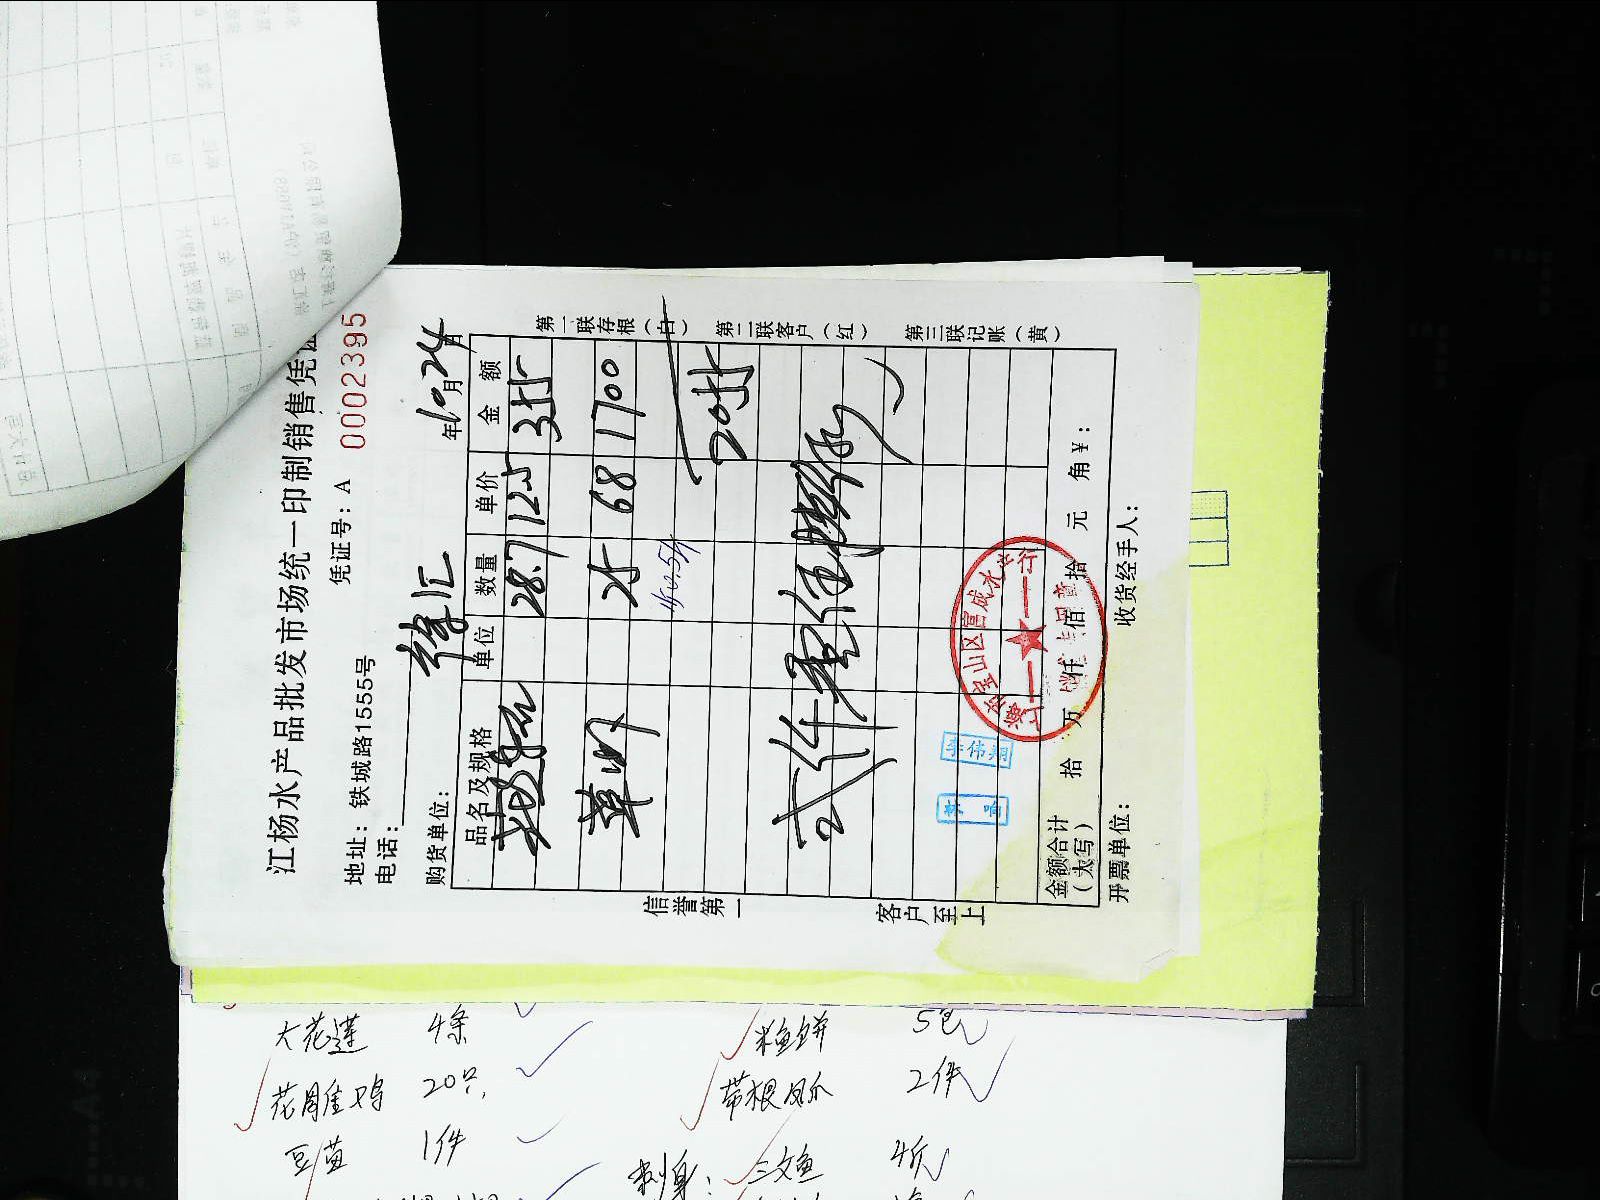 江杨水产品批发市场统一印制销售凭证
地址：铁城路1555号 凭证号：A 0002395
电话：
购货单位：徐汇 年10月24日
品名及规格 单位 数量 单价 金额
28.7 12.5 355
草虾 25 68 1700
2055
贰仟
金额合计（大写） 拾 万 仟 佰 拾 元 角 ¥：
开票单位： 收货经手人：
第一联存根（白） 第二联客户（红） 第三联记账（黄）
信誉第一 客户至上
上海市宝山区富成水产行
李伟翔
大花莲 4条
花雕鸡 20只
豆苗 1件
米鱼饼 5包
带根凤爪 2件
刺身： 三文鱼 4斤